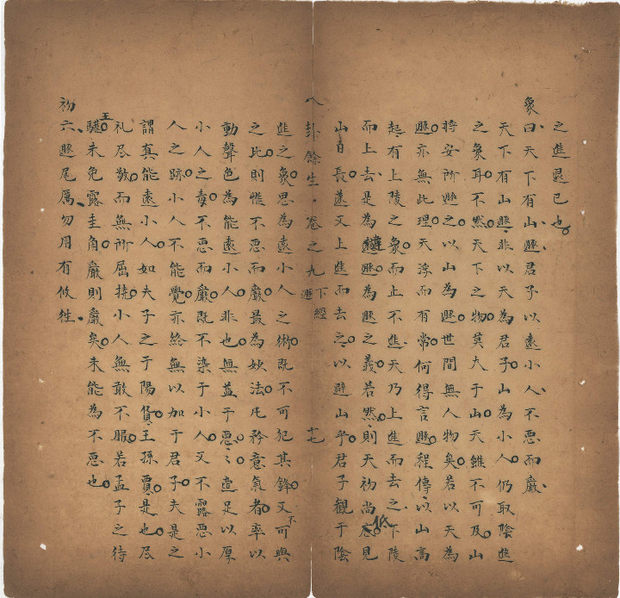 之進退已也
象曰天下有山遯君子以遠小人不惡而嚴
天下有山遯非以天為君子山為小人仍取陰進
之象耳不然天下之物莫大于山天雖不可及山
將安所遯之以山為遯世間無人物矣若以天為
遯亦無此理天浮而有常何得言遯程傳以山高
起有上陵之象而止不進天乃上進而去之下陵
而上去是為遯遯為遯之義若然則天初尚低見
山自長遂又上進而去之以避山乎君子觀于陰
八卦餘生 卷之九 下經 遯 十七
進之象思為遠小人之術既不可犯其鋒又不可與
之比則惟不惡而嚴最為妙法凡矜意氣者率以
動聲色為能遠小人非也無益于惡惡適足以厚
小人之毒不惡而嚴既不染于小人又不露惡小
人之跡小人不能覺亦終無以加于君子夫是之
謂真能遠小人如夫子之于陽貨王孫賈是也尽
礼尽敬而無所屈撓小人無敢不服若孟子之待
王驩未免露圭角嚴則嚴矣未能為不惡也
初六遯尾厲勿用有攸往